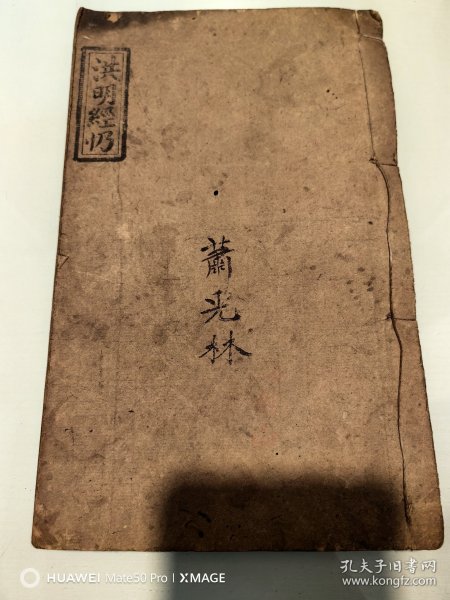 洪明經
蕭光林
HUAWEI Mate50 Pro | XMAGE
孔夫子旧书网
www.kongfz.com